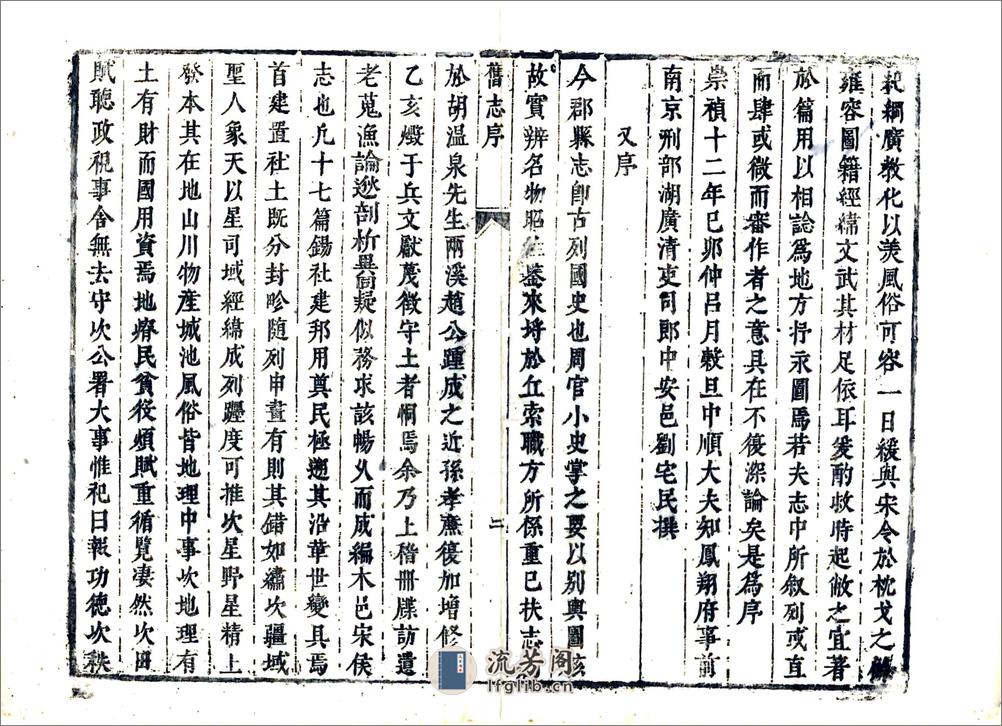 紀綱廣教化以美風俗可容一日緩與宋令於枕戈之餘
雍容圖籍經緯文武其材足依耳爰酌收時起敝之宜著
於篇用以相諗爲地方抒永圖焉若夫志中所叙列或直
而肆或微而審作者之意具在不復深論矣是爲序
崇禎十二年己卯仲吕月穀旦中順大夫知鳳翔府事前
南京刑部湖廣清吏司郎中安邑劉宅民撰
又序
今郡縣志卽古列國史也周官小史掌之要以别輿圖核
故實辨名物昭往鑒來埒於丘索職方所係重已扶志
舊志序
二
於胡温泉先生兩溪趙公踵成之近孫孝廉復加增修
乙亥燬于兵文獻蔑徵守土者恫焉余乃上稽冊牒訪遺
老蒐漁論逖剖析異同疑似務求該暢久而成編木邑宋侯
志也凡十七篇錫社建邦用奠民極遡其沿革世變具焉
首建置社土既分封畛随列申畫有則其錯如繡次疆域
聖人象天以星司域經緯成列躔度可推次星野星精上
發本其在地山川物産城池風俗皆地理中事次地理有
土有財而國用資焉地瘠民貧役煩賦重循覽凄然次田
賦聽政視事舍無去守次公署大事惟祀曰報功德次秩
流芳阁
lfglib.cn